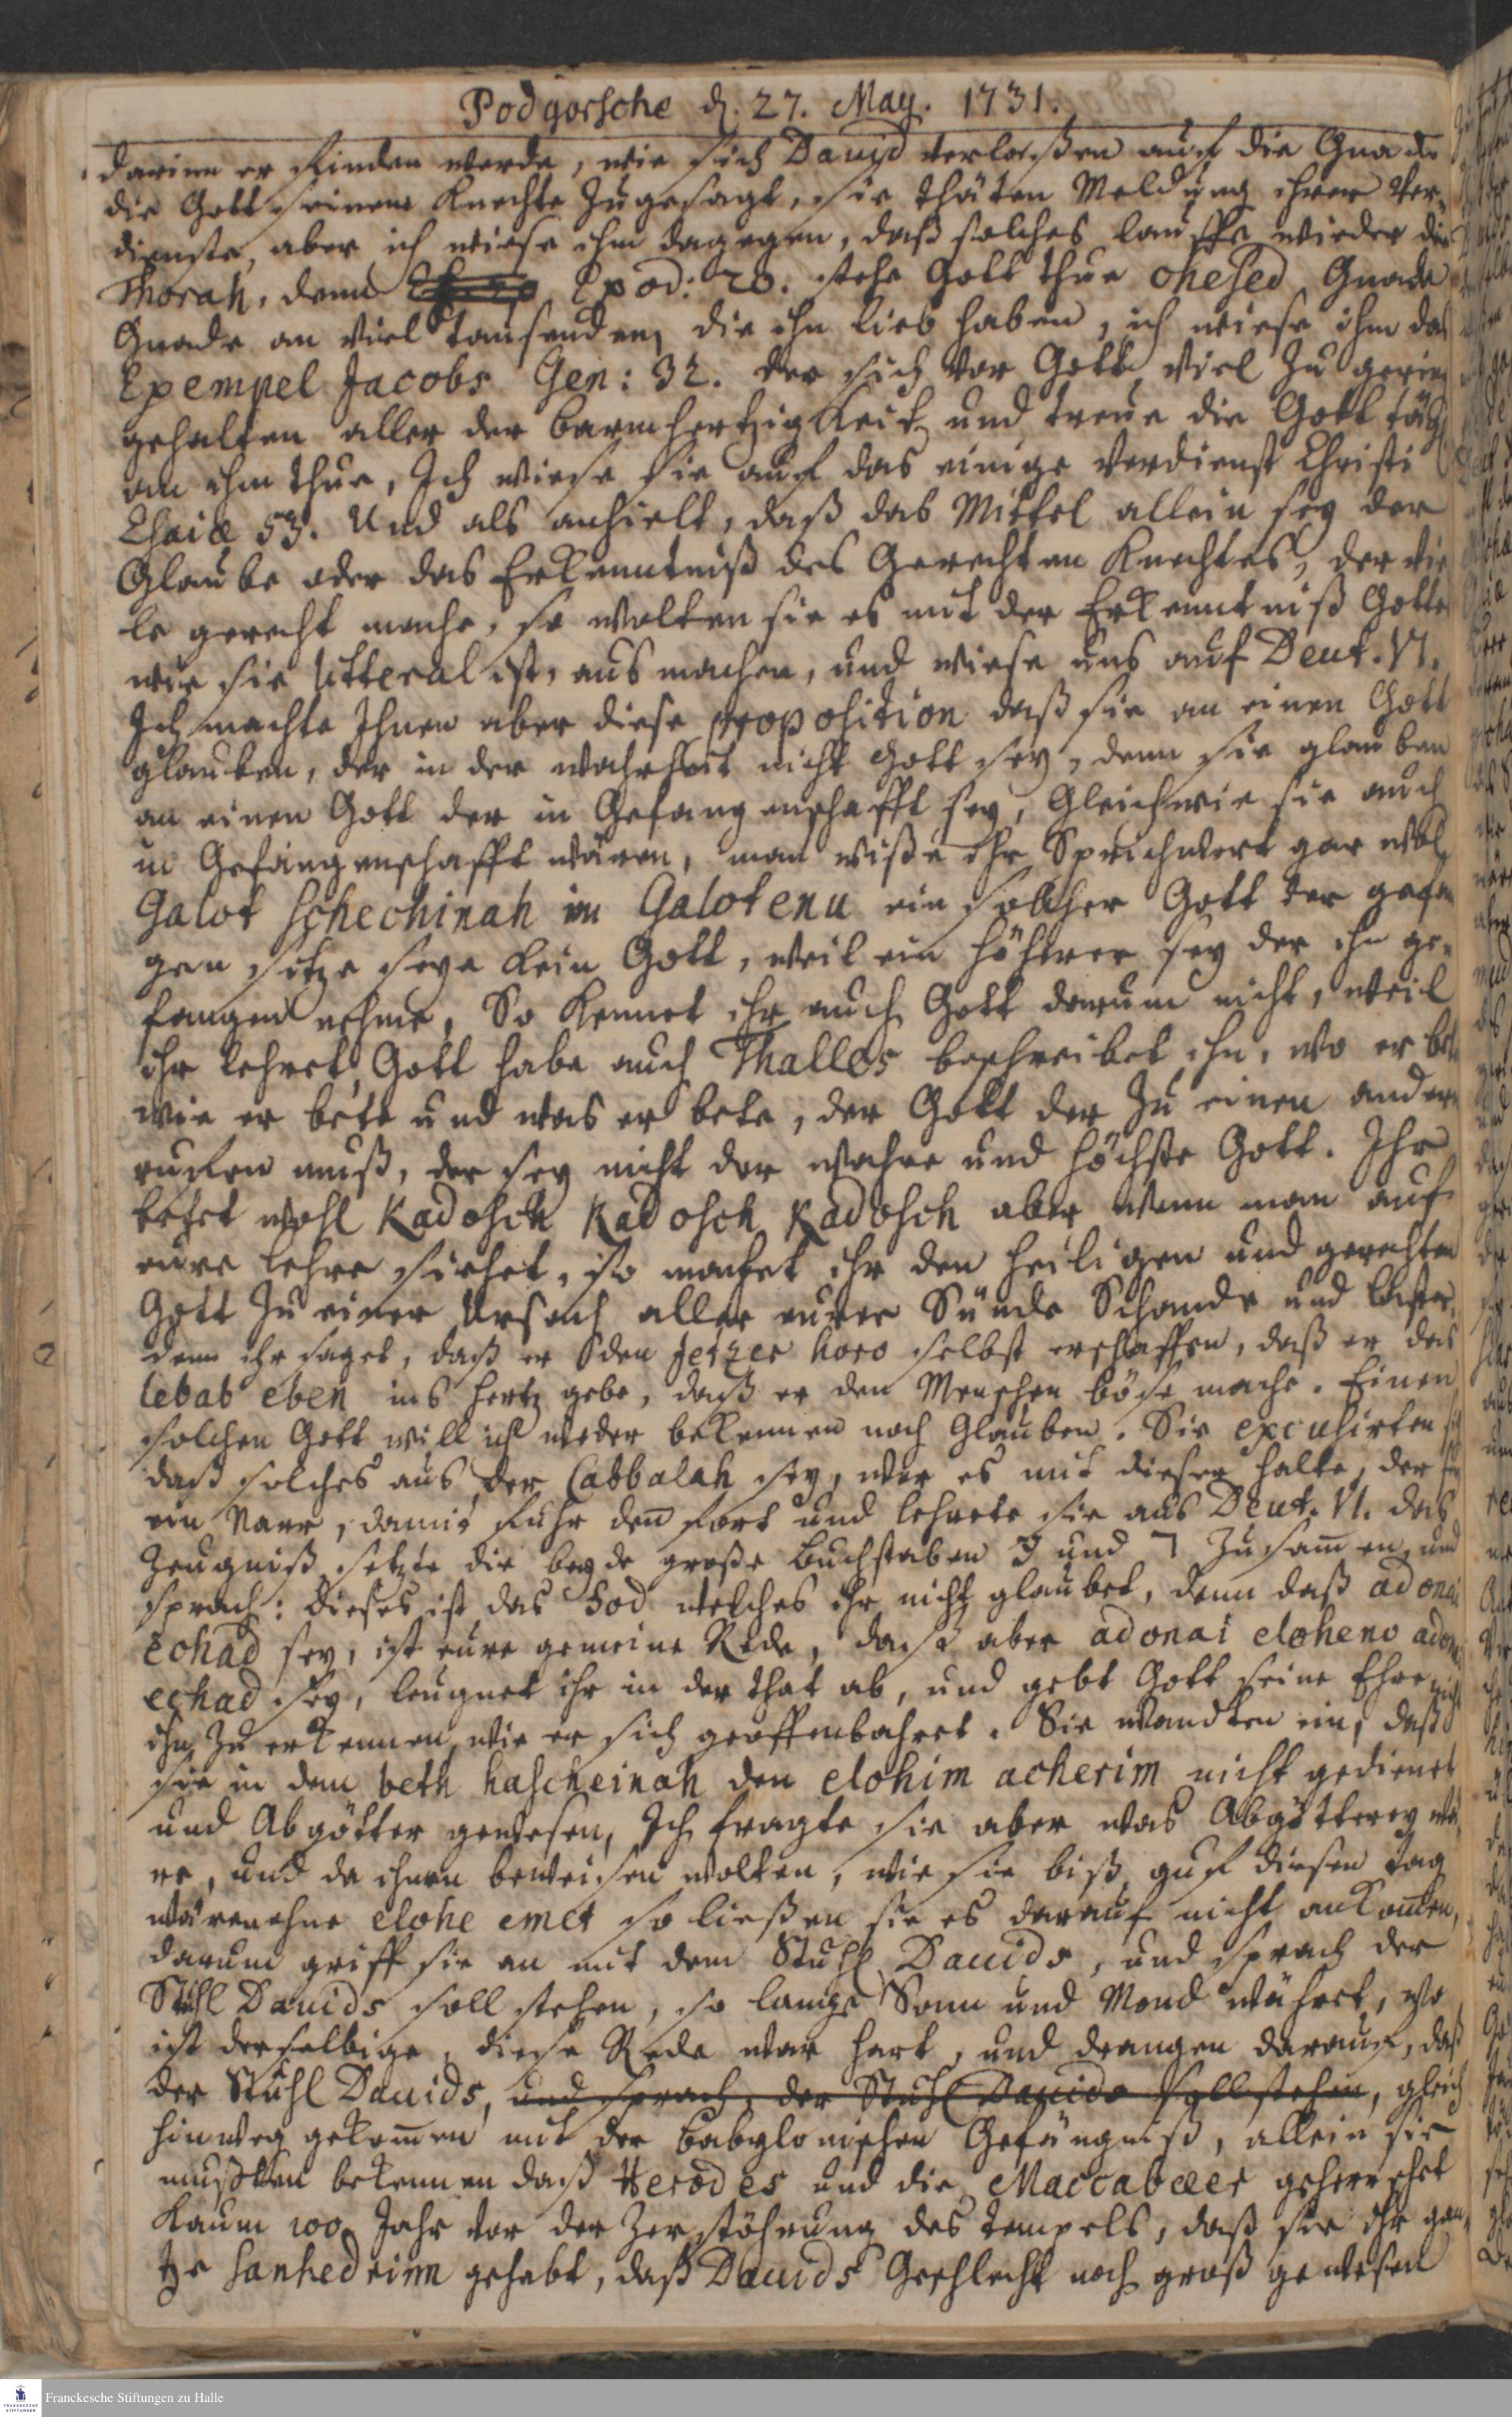 Podgorsche d. 27. May. 1731.
darinn er finden werde, wie sich David verlaßen auf die Gnade
die Gott seinem Knechte zugesagt, sie thäten Meldung ihrer Ver-
dienste, aber ich wiese ihn dagegen, daß solches lauffe wieder die
Thorah, denn Exod: 20. stehe Gott thue chesed Gnade
Gnade an viel tausenden, die ihn lieb haben, ich wiese ihm das
Exempel Jacobs Gen: 32. der sich vor Gott viel zu gering
gehalten aller der barmhertzigkeit und treue die Gott tägl
an ihm thue, Ich wiese sie auf das einige Verdienst Christi
Esaiæ 53. Und als anhielt, daß das Mittel allein sey der
Glaube oder das Erkenntniß des Gerechten Knechtes, der vie
le gerecht mache, so wolten sie es mit der Erkenntniß Gottes
wie sie litteral ist, ausmachen, und wiese uns auf Deut. VI.
Ich machte Ihnen aber diese proposition daß sie an einen Gott
glauben, der in der wahrheit nicht Gott sey, denn sie glauben
an einen Gott der in Gefangenschafft sey, Gleichwie sie auch
in Gefangenschafft wären, man wiße ihr Sprichwort gar wol
Galot schechinah in Galotenu ein solcher Gott der gefan
gen sitze seye kein Gott, weil ein höhrer sey der ihn ge-
fangen nehme, So kennet ihr auch Gott darum nicht, weil
ihr lehret, Gott habe auch Thalles beschreibet ihn, wo er bet
wie er bete und was er bete, der Gott der zu einen andern
ruffen muß, der sey nicht der wahre und höchste Gott. Ihr
betet wohl Kadosch Kadosch Kadosch aber wenn man auf
eure lehre siehet, so machet ihr den heiligen und gerechten
Gott zu einer Ursach aller eurer Sünde Schande und laster
denn ihr saget, daß er den jetzer horo selbst erschaffen, daß er das
lebab eben ins hertz gebe, daß er den Menschen böse mache. Einen
solchen Gott will ich weder bekennen noch Glauben. Sie excusirten sich
daß solches aus der Cabbalah sey, wer es mit dieser halte, der sey
ein Narr, damit fuhr deñ fort und lehrete sie aus Deut. VI. das
Zeugniß setzte die beyde große Buchstaben ע und ד zusam̃en und
sprach: dieses ist das Sod welches ihr nicht glaubet, denn daß adonai
echad sey, ist eure gemeine Rede, daß aber adonai eloheno adonai
echad sey, leugnet ihr in der that ab, und gebt Gott seine Ehre nicht
ihn zu erkennen, wie er sich geoffenbahret. Sie wandten ein, daß
sie in dem beth hascheinah den elohim acherim nicht gedienet
und Abgötter gewesen, Ich fragte sie aber was Abgötterey wä-
re, und da ihnen beweisen wolten, wie sie biß auf diesen tag
wären ohne elohe emet so ließen sie es darauf nicht ankom̃en,
darum griff sie an mit dem Stuhl Davids, und sprach der
Stuhl Davids soll stehen, so lange Sonn und Mond währet, wo
ist derselbige, diese Rede war hart, und drangen darauf, daß
der Stuhl Davids, und sprach, der Stuhl Davids soll stehen, gleich
hinweg gekom̃en mit der babylonischen Gefängniß, allein sie
mußten bekennen daß Herodes und die Maccabæer geherrschet
kaum 100 Jahr vor der Zerstöhrung des tempels, daß sie ihr gan-
tze Sanhedrinn gehabt, daß Davids Geschlecht noch groß gewesen
Franckesche Stiftungen zu Halle